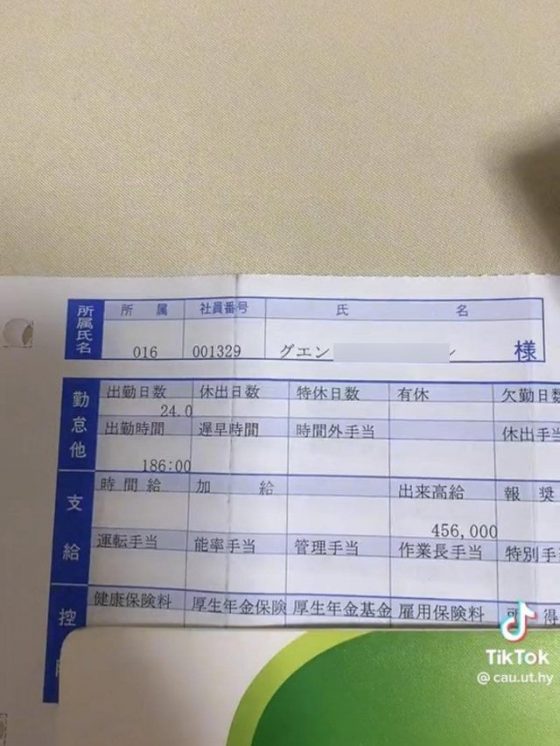 所属氏名
所 属 社員番号 氏 名
016 001329 グエン 様
勤怠他
出勤日数 休出日数 特休日数 有休 欠勤日数
24.0
出勤時間 遅早時間 時間外手当 休出手当
186:00
支給
時間給 加 給 出来高給 報 奨
456,000
運転手当 能率手当 管理手当 作業長手当 特別手
控
健康保険料 厚生年金保険 厚生年金基金 雇用保険料 得
TikTok
@cau.ut.hy